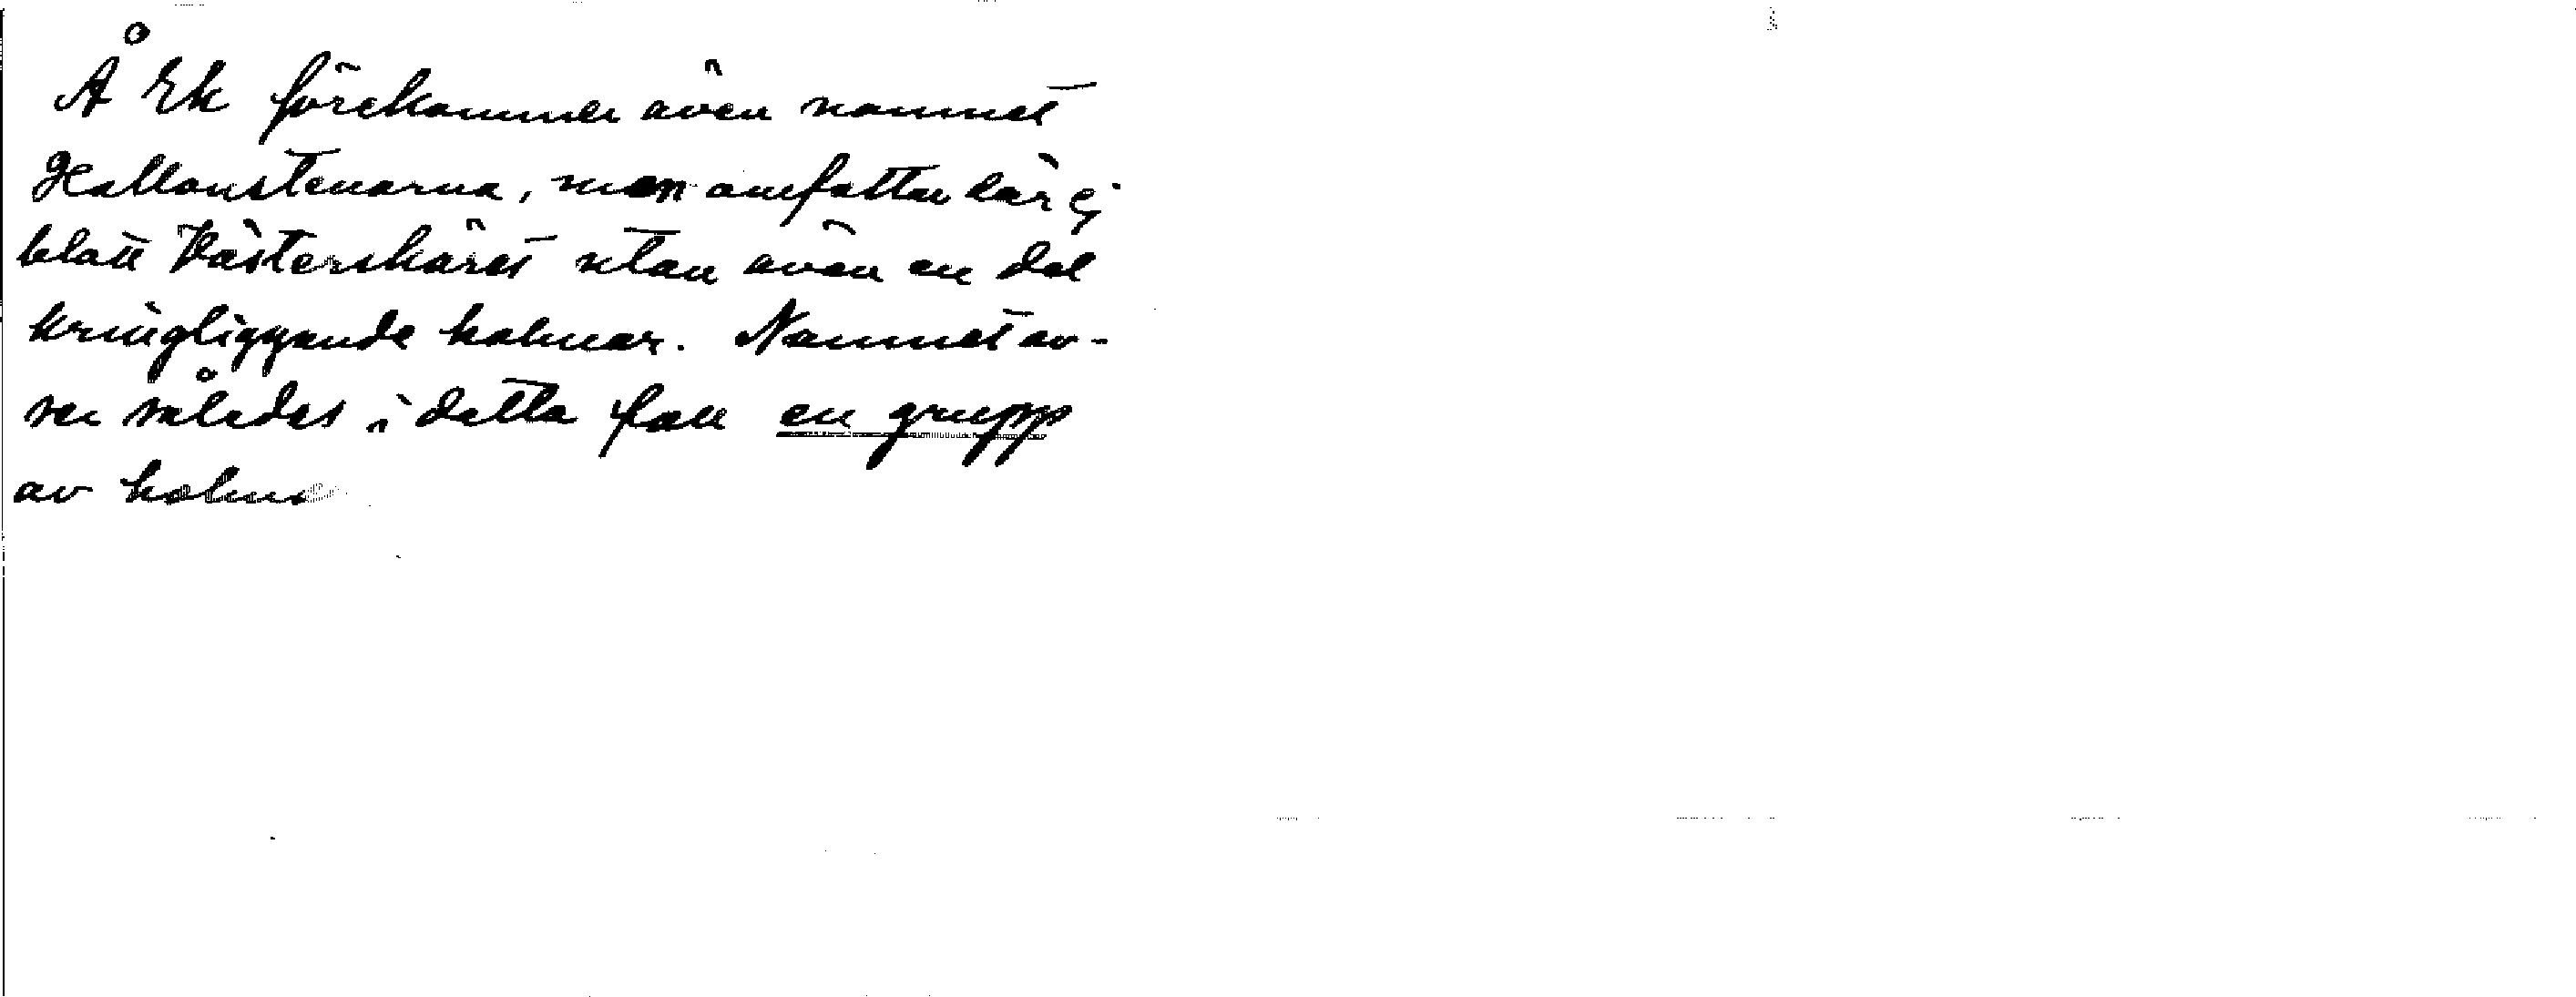 Å Ek förekommer även namnet
Hallonstenarna, men omfattar här ej
blott Västerskäret utan även en del
kringliggande holmar. Namnet av-
ser således i detta fall en grupp
av holmar